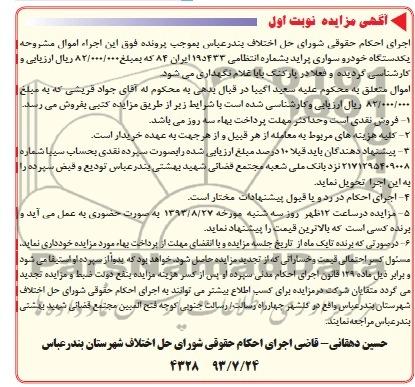 آگهی مزایده نوبت اول
اجرای احکام حقوقی شورای حل اختلاف بندرعباس بموجب پرونده فوق این اجراء اموال مشروحه
یکدستگاه خودرو سواری پراید بشماره انتظامی ۴۳۳د۱۹ ایران ۸۴ که بمبلغ ۸۲/۰۰۰/۰۰۰ ریال ارزیابی و
کارشناسی گردیده و فعلا در پارکینگ بابا غلام نگهداری می شود.
اموال متعلق به محکوم علیه سعید اکیبا در قبال بدهی به محکوم له آقای جواد قریشی که به مبلغ
۸۲/۰۰۰/۰۰۰ ریال ارزیابی و کارشناسی شده است با شرایط زیر از طریق مزایده کتبی بفروش می رسد.
۱- فروش نقدی است وحداکثر مهلت پرداخت بهاء سه روز می باشد.
۲- کلیه هزینه های مربوط به معامله از هر قبیل و از هرجهت به عهده خریدار است.
۳- پیشنهاد دهندگان باید قبلا ۱۰درصد مبلغ ارزیابی شده رابصورت سپرده نقدی بحساب سیبا شماره
۲۱۷۱۲۹۵۴۰۹۰۰۸ نزد بانک ملی شعبه مجتمع قضائی شهید بهشتی بندرعباس تودیع و قبض سپرده را
به این اجرا تحویل نماید.
۴- اجرای احکام در رد و یا قبول پیشنهادات مختار است.
۵- مزایده درساعت ۱۲ظهر روز سه شنبه مورخه ۱۳۹۳/۸/۲۷ به صورت حضوری به عمل می آید و
برنده کسی است که بالاترین قیمت را پیشنهاد نماید.
۶- درصورتی که برنده تایک ماه از تاریخ جلسه مزایده و با انقضای مهلت از پرداخت بهاء مورد مزایده خودداری نماید.
مسئول کسر احتمالی قیمت وخساراتی که از تجدید مزایده حاصل شود. خواهد بود که بدوا از سپرده او استیفا می شود
و برابر ذیل ماده ۱۲۹ قانون اجرای احکام مدنی سپرده او پس از کسر هزینه مزایده بنفع دولت ضبط و مزایده تجدید
می گردد متقاضیان شرکت درمزایده برای کسب اطلاع بیشتر می توانند به اجرای احکام حقوقی شورای حل اختلاف
شهرستان بندرعباس واقع در گلشهر چهارراه رسالت/ رسالت جنوبی کوچه فتح المبین مجتمع قضائی شهید بهشتی
بندرعباس مراجعه نمایند.
حسین دهقانی- قاضی اجرای احکام حقوقی شورای حل اختلاف شهرستان بندرعباس
۹۳/۷/۲۴ ۴۳۲۸